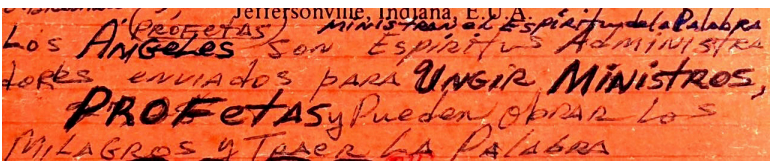 Jeffersonville, Indiana, E.U.A.
(PROFETAS) MINISTRAN el Espíritu de la Palabra
Los ÁNGeles SON Espíritus AdMiNistRA
doRes enviados PARA UNGiR MiNistRos,
PROFetAS y Pueden obRAR Los
MiLAGROS y TRAeR LA PALAbRA